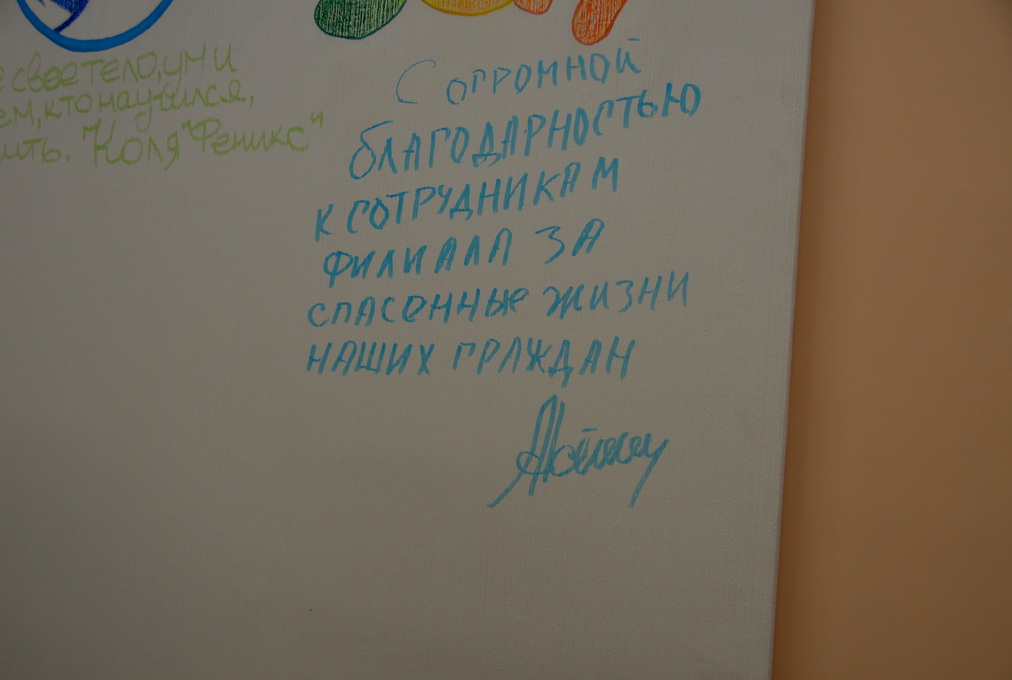 свое тело, ум и
ем, кто научился,
ить. "Коля "Феникс"
С огромной
благодарностью
к сотрудникам
филиала за
спасенные жизни
наших граждан